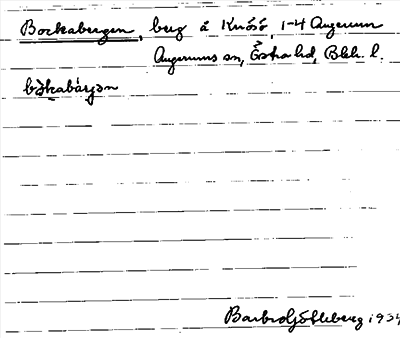 Bockabergen, berg å Knösö, 1-4 Augerum
Augerums sn, Östra hd, Blek. l.
bòkabárjən
Barbro Götleberg 1934